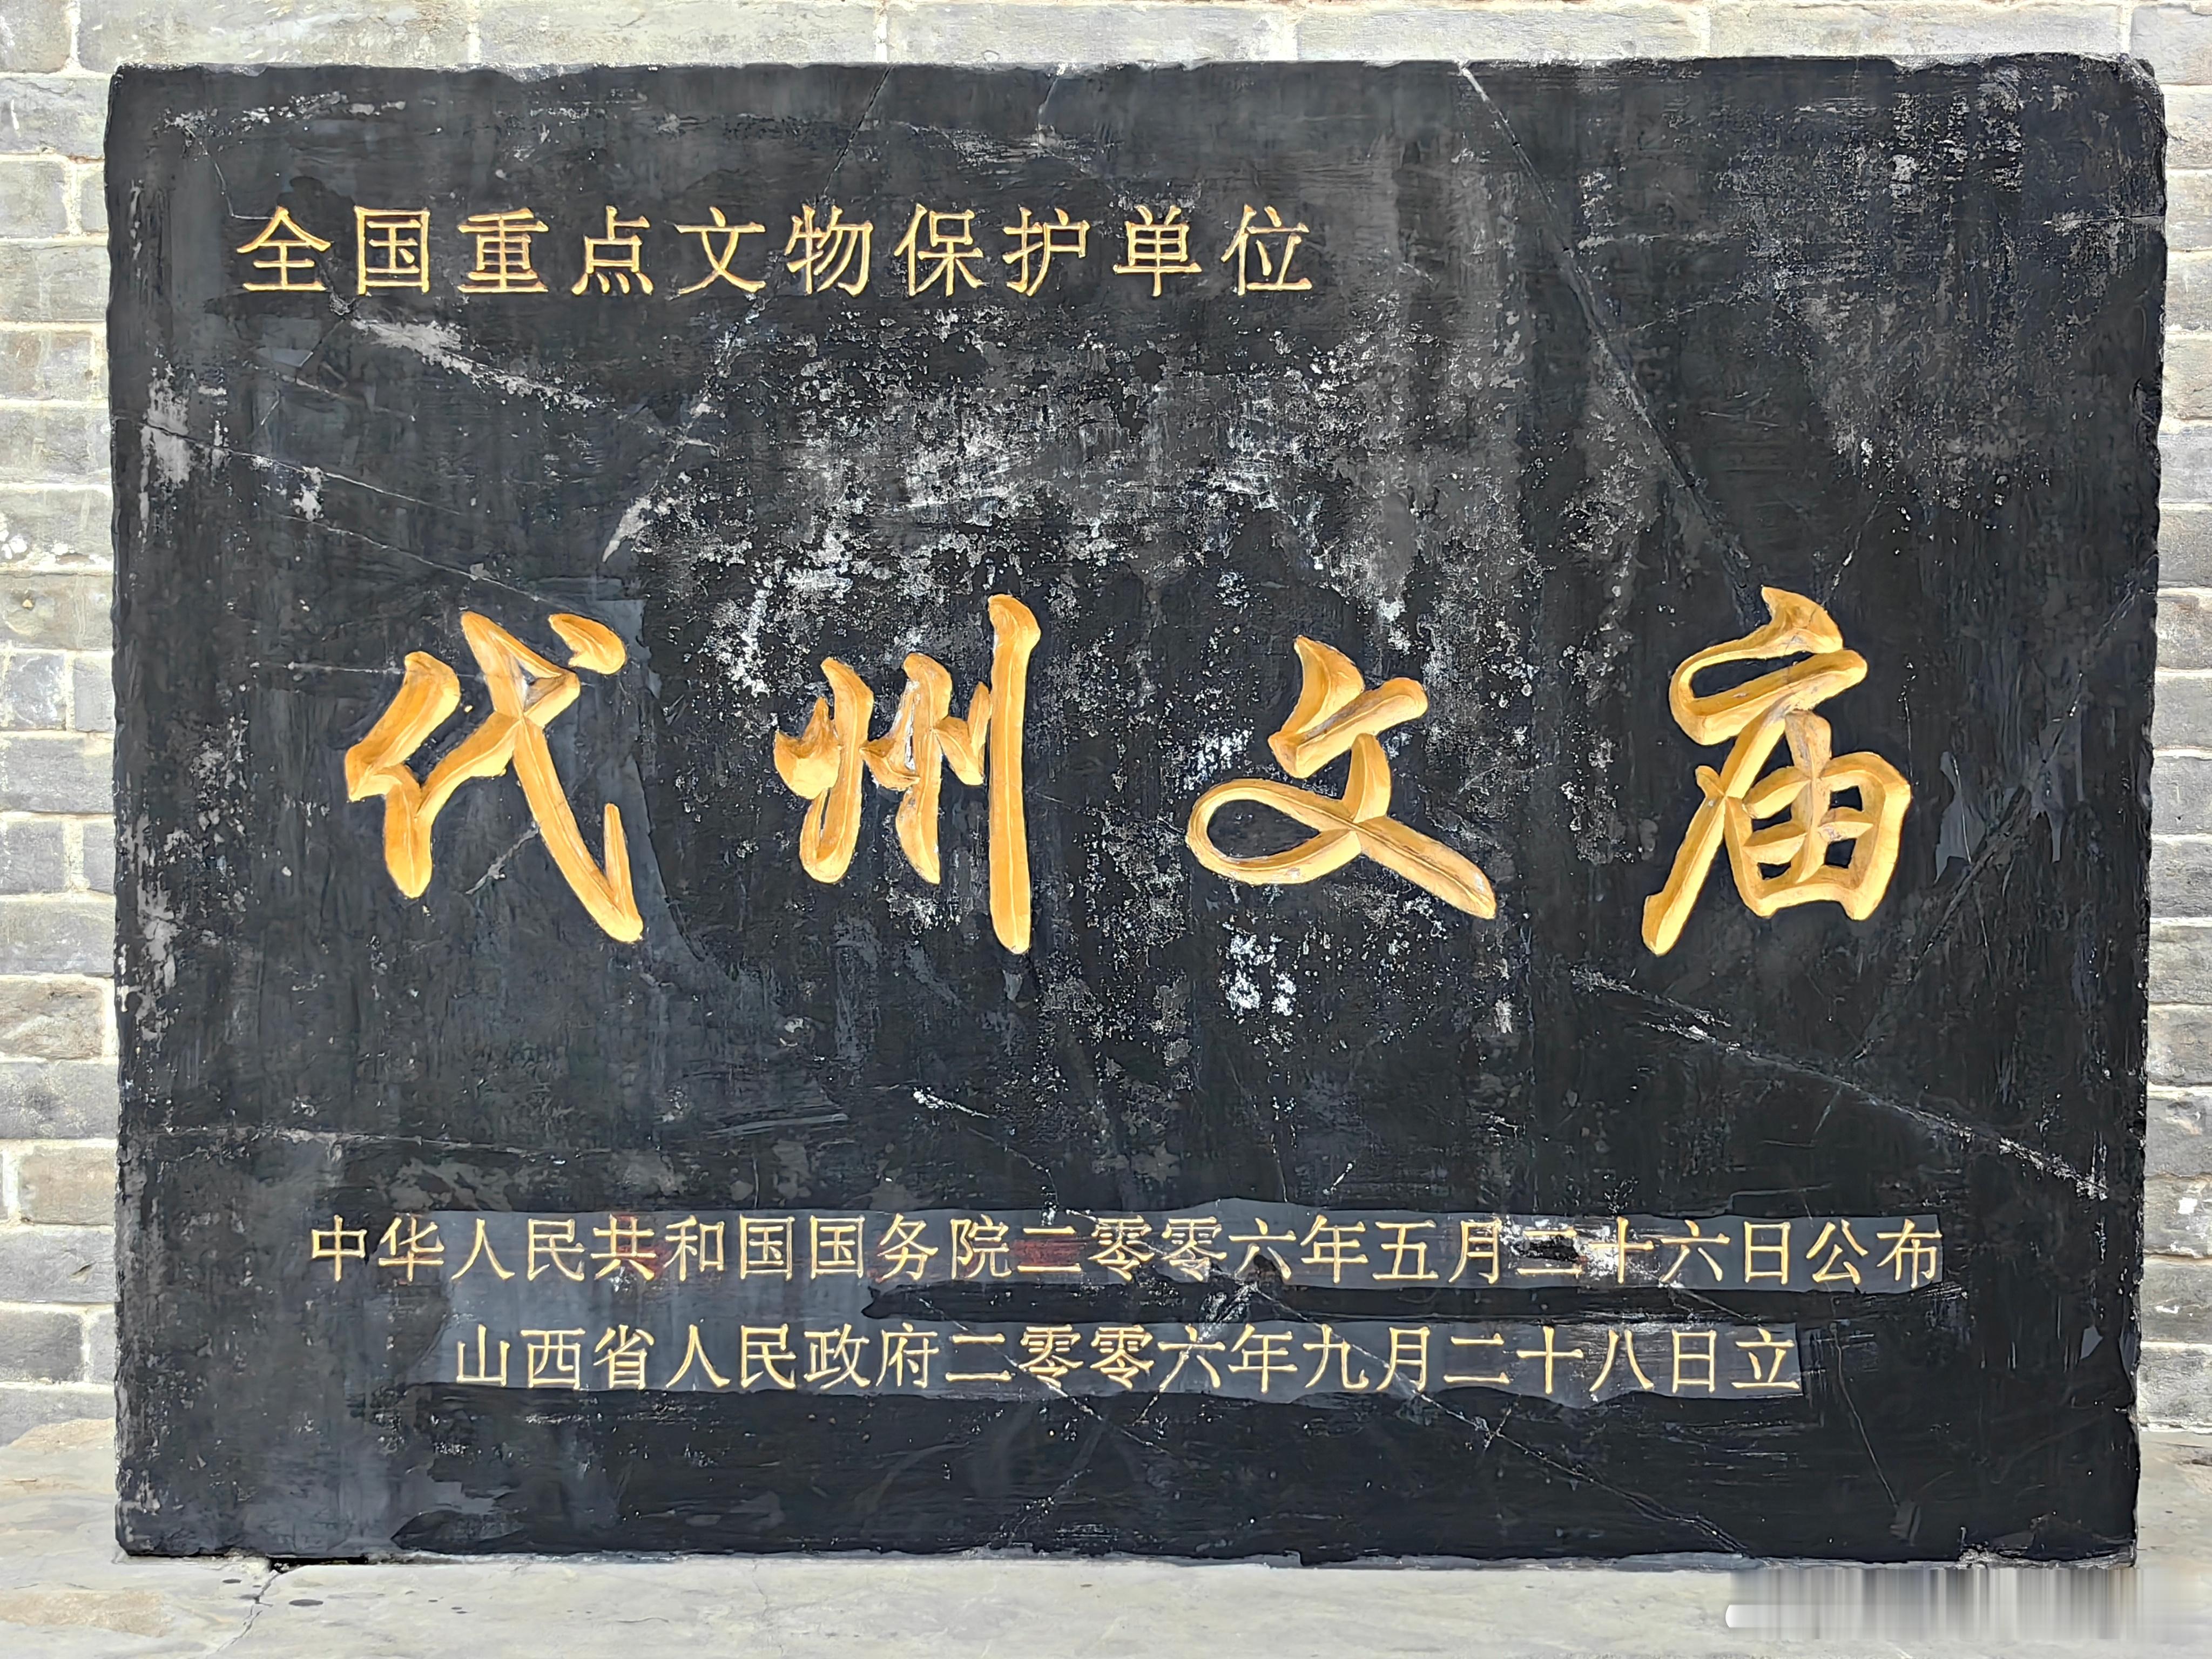 全国重点文物保护单位
代州文庙
中华人民共和国国务院二零零六年五月二十六日公布
山西省人民政府二零零六年九月二十八日立